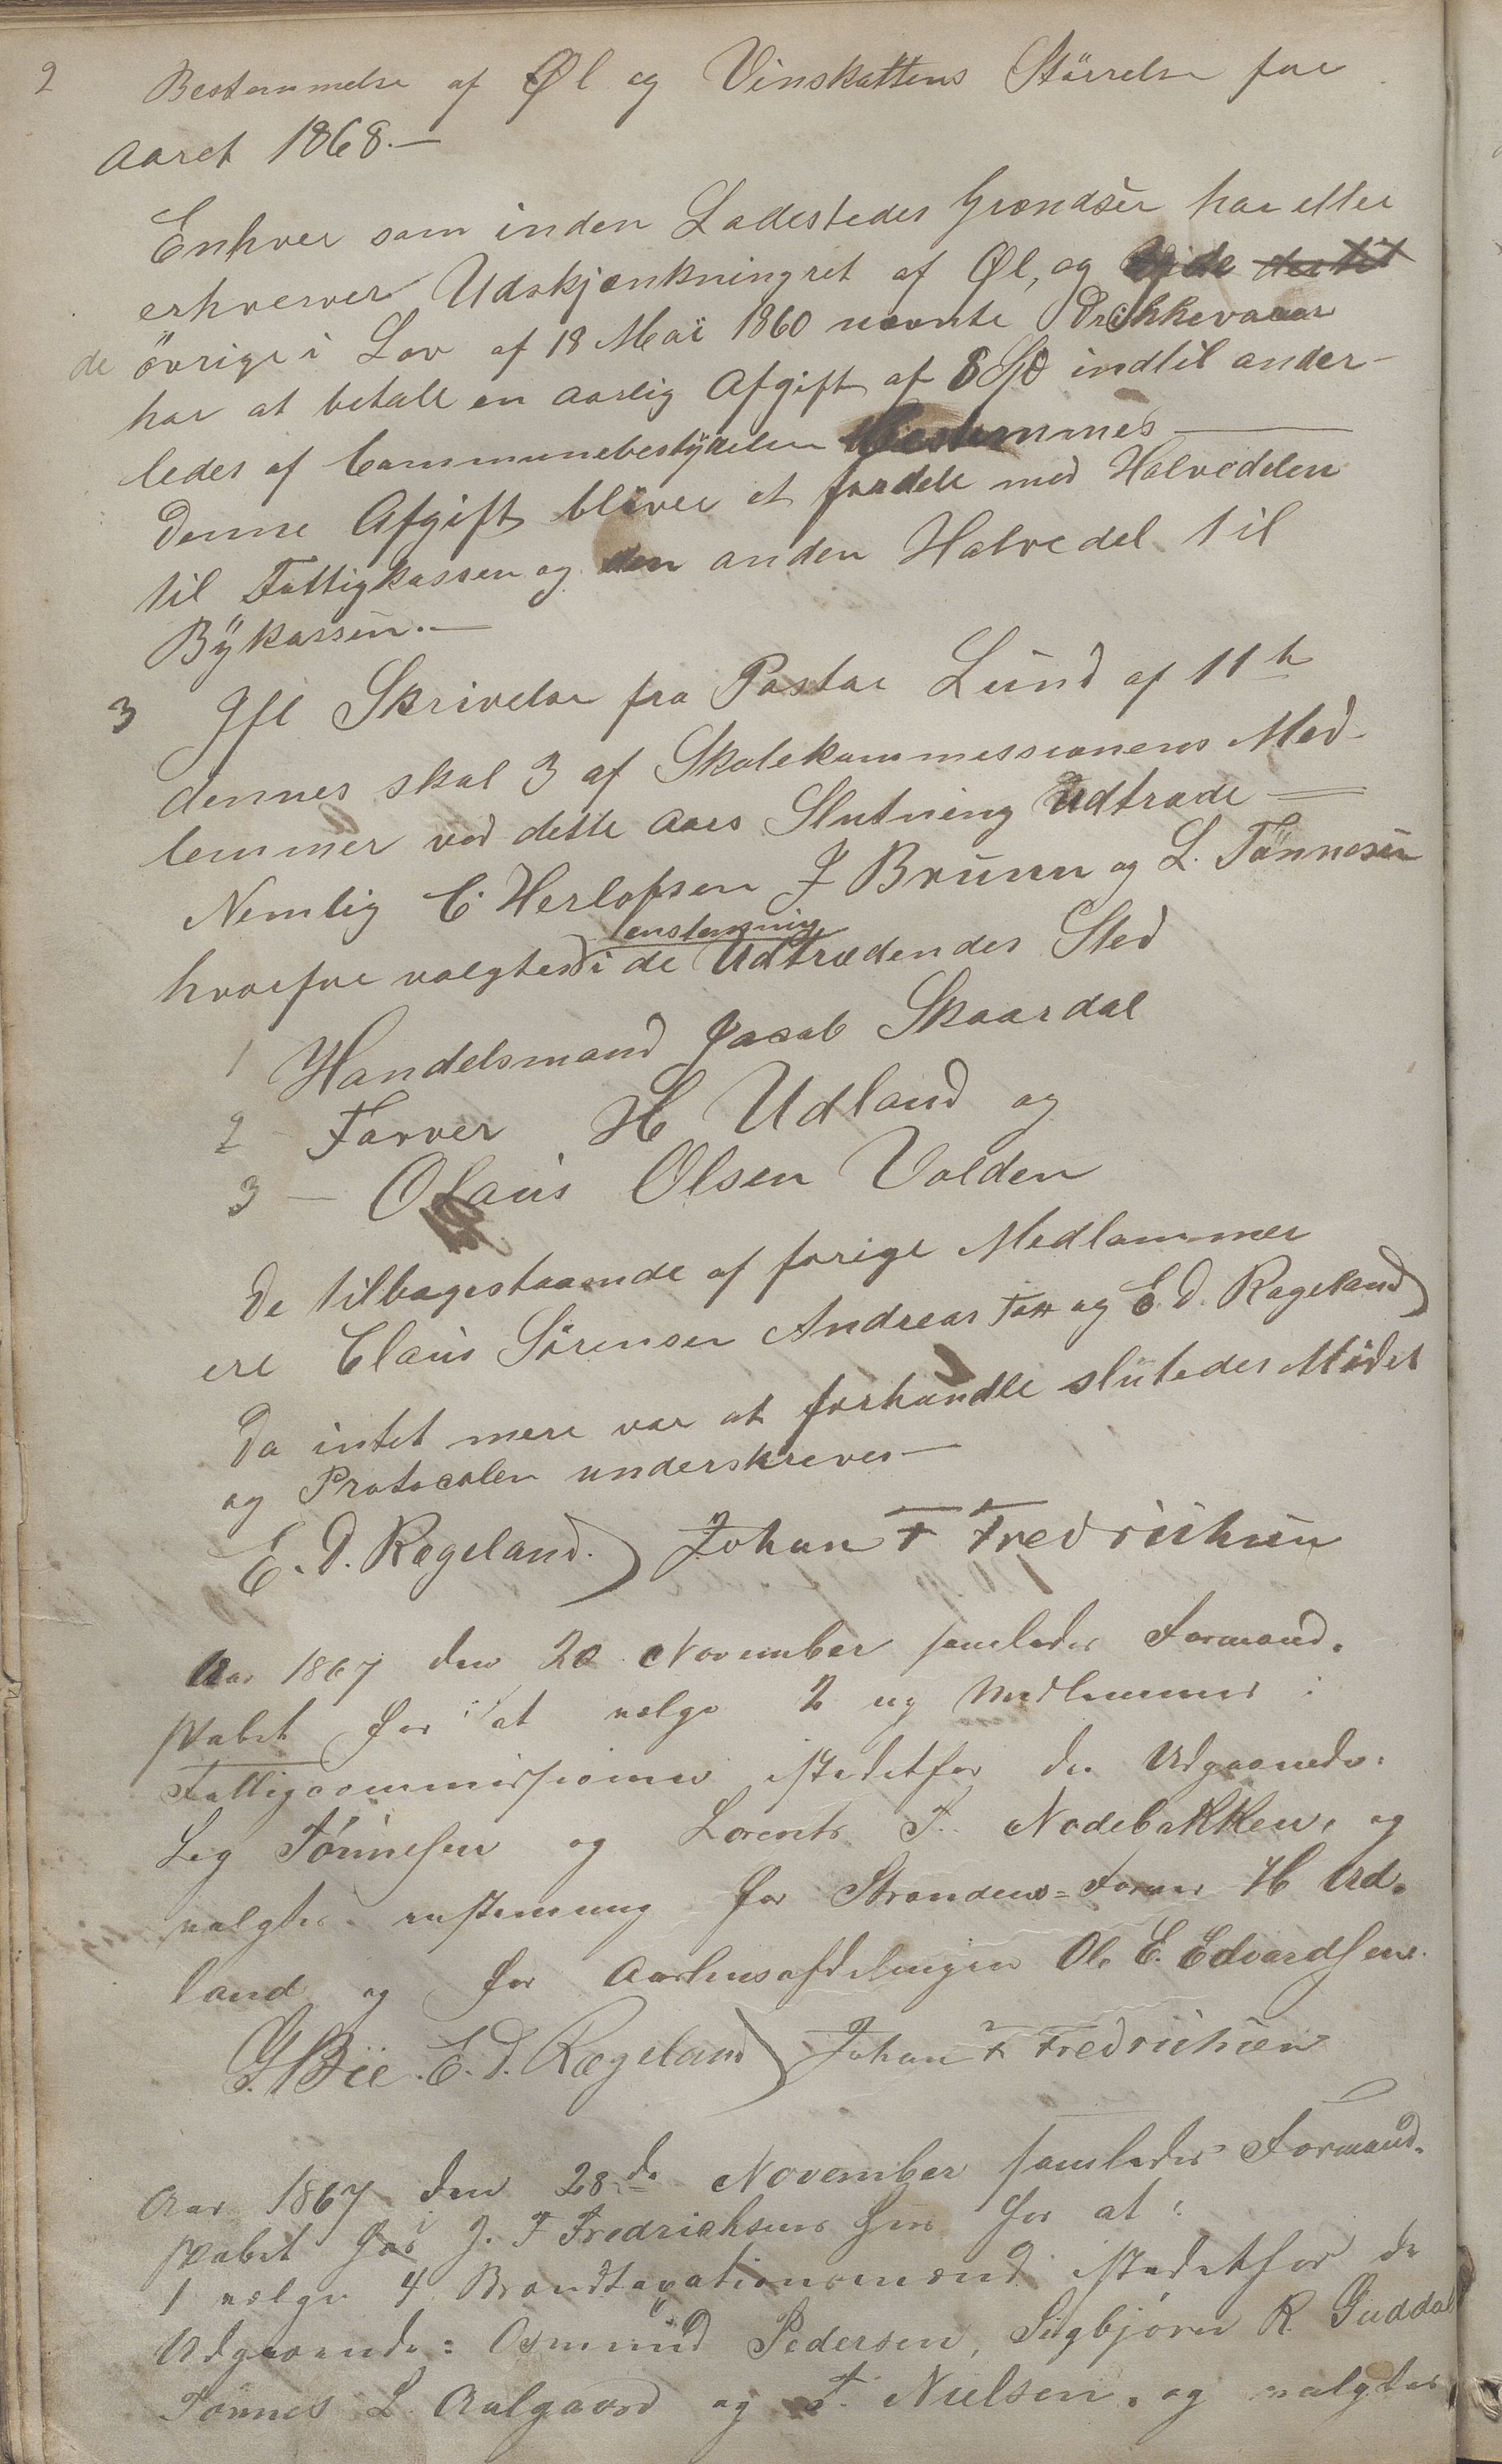 2 Bestemmelse af Øl og Vinskattens Störrelse for
Aaret 1868.—
Enhver som inden Ladestedes Grændser har eller
erhverver Udskjænkningret af Øl, og
de övrige i Lov af 18 Mai 1860 nævnte Drikkevarer
har at betale en aarlig Afgift af 8 Spd indtil ander-
ledes af Communebestÿrelsen Bestemmes —
Denne Afgift bliver at fordele med Halvedelen
til Fattigkassen og den anden Halvedel til
Bÿkassen.—
3 Ifl Skrivelse fra Pastor Lund af 11te
dennes skal 3 af Skolekommissionens Med-
lemmer ved dette Aars Slutning Udtræde —
Nemlig C. Herlofsen J Bruun og L. Tönnesen
enstemmig
hvorfor valgtes i de Udtrædendes Sted
1 Handelsmand Jacob Skaardal
2 Farver H Udland og
3 — Olaus Olsen Volden
De tilbagestaaende af forige Medlemmer
ere Claus Sörensen Andreas og E. D. Rageland
Da intet mere var at forhandle slutedes Mödet
og Protocolen underskreves —
E. D. Rægeland. Johan F Fredrichsen
Aar 1867 den 20 November samledes Formand-
skabet for at vælge 2 ny Medlemmer i
Fattigcommissionen istedetfor de Udgaaende:
Log Tönnesen og Lorents T. Nodebakken, og
valgtes enstemmig for Stranden = Farver H Ud-
land og for Aarhusafdelingen Ole E. Edvardsen.
E. D. Rægeland Johan F Fredrichsen
Aar 1867 den 28de November samledes Formand-
skabet hos J. F Fredrichsens for at:
1 vælge 4 Brandtaxationsmænd istedetfor de
Udgaaende: Osmund Pedersen, Sigbjörn R. Guddal
Tönnes L. Aalgaard og T. Nielsen, og valgtes